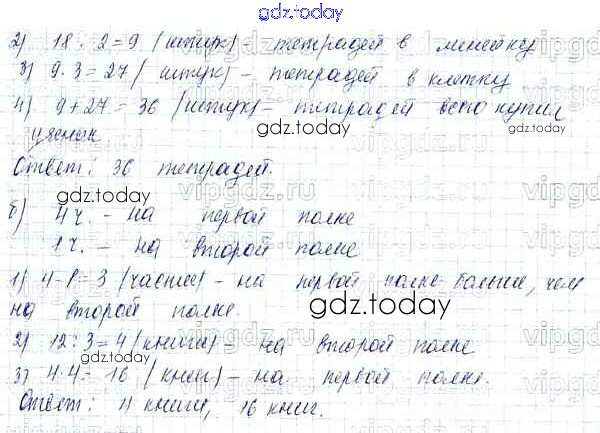 gdz.today
2) 18 : 2 = 9 (штук) - тетрадей в линейку
3) 9 · 3 = 27 (штук) - тетрадей в клетку
4) 9 + 27 = 36 (штук) - тетрадей всего купил
gdz.today gdz.today
ученик
Ответ: 36 тетрадей.
vipgdz.ru
gdz.today
б) 4 ч. - на первой полке
1 ч. - на второй полке
1) 4 - 1 = 3 (части) - на первой полке больше, чем
на второй полке.
gdz.today
2) 12 : 3 = 4 (книги) на второй полке
gdz.today
3) 4 · 4 = 16 (книг) - на первой полке.
Ответ: 4 книги, 16 книг.